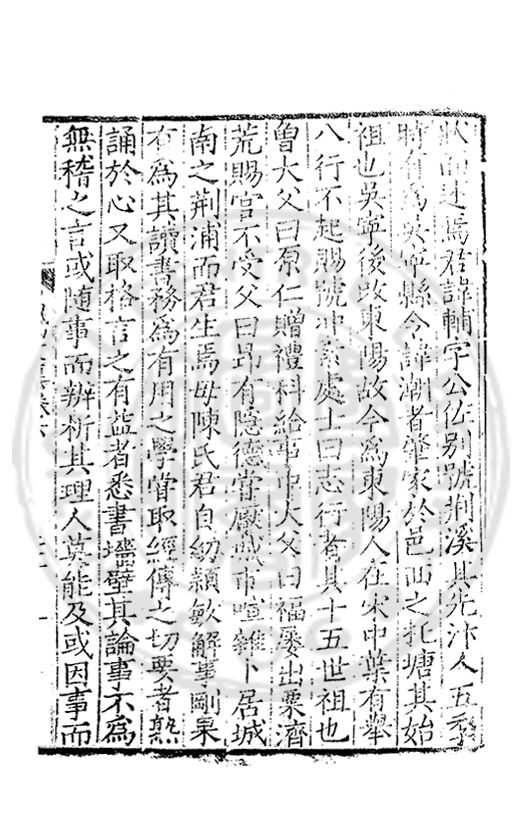 狀而述焉君諱輔字公佐别號荆溪其先汴人五季
時有為吳寧縣令諱潮者肇家於邑西之托塘其始
祖也吳寧後改東陽故今為東陽人在宋中葉有舉
八行不起賜號冲素處士曰志行者其十五世祖也
曾大父曰原仁贈禮科給事中大父曰福屢出粟濟
荒賜官不受父曰昂有隱德嘗厭城市喧雜卜居城
南之荆浦而君生焉母陳氏君自幼穎敏解事剛果
有為其讀書務為有用之學嘗取經傳之切要者熟
誦於心又取格言之有益者悉書墻壁其論事不為
無稽之言或随事而辨析其理人莫能及或因事而